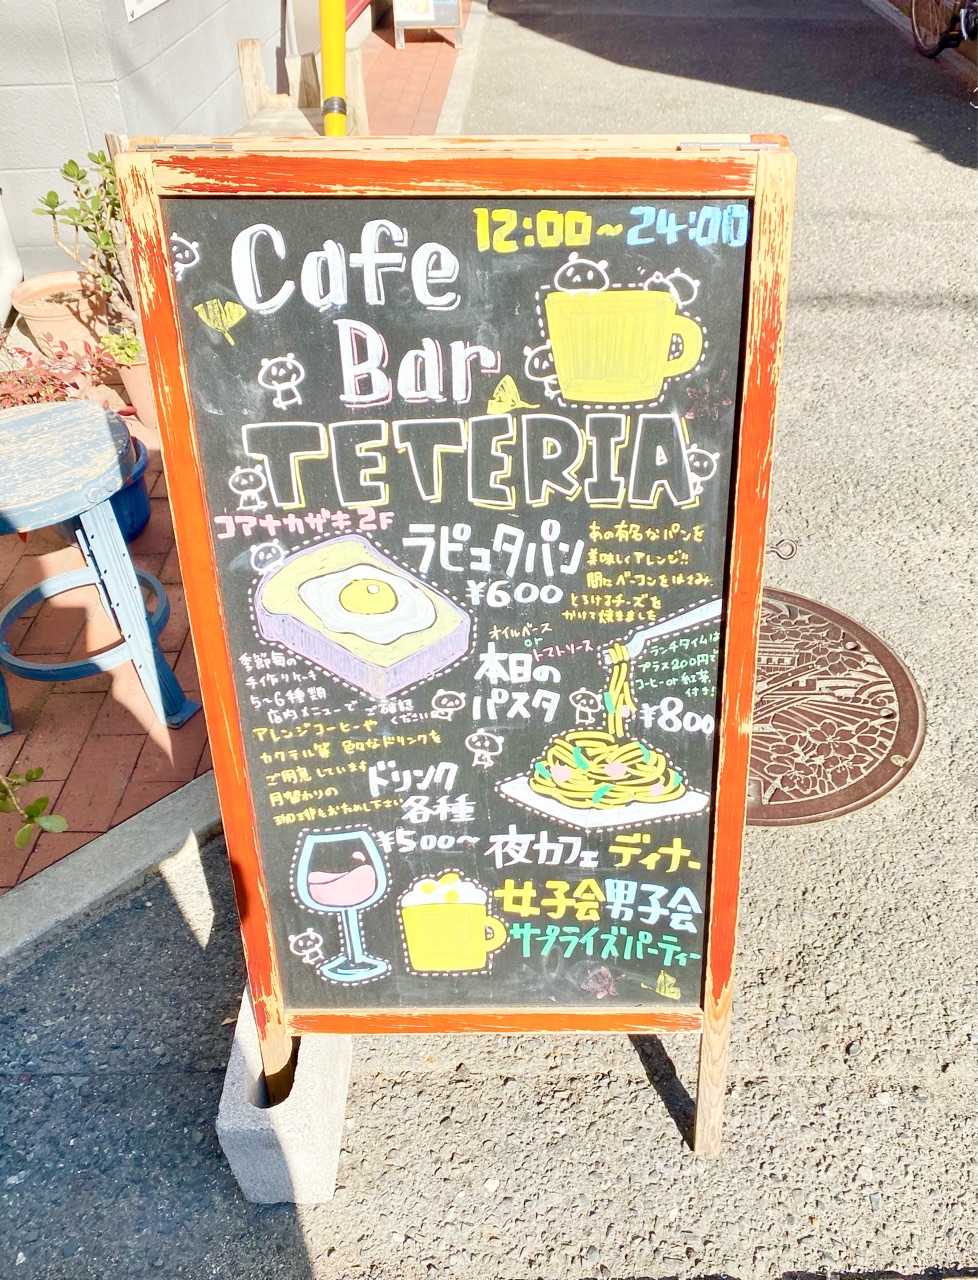 Cafe
12:00~24:00
Bar
TETERIA
コアナカザキ2F
ラピュタパン
¥600
あの有名なパンを
美味しくアレンジ!!
間にベーコンをはさみ、
とろけるチーズを
かけて焼きました
オイルベース
or
トマトソース
本日の
パスタ
¥800
ランチタイムは
プラス200円で
コーヒーor紅茶
付き!
季節毎の
手作りケーキ
5~6種類
店内メニューでご確認
ください
アレンジコーヒーや
カクテル等 色々なドリンクを
ご用意しています
月替わりの
珈琲もおためし下さい
ドリンク
各種
¥500~
夜カフェ ディナー
女子会男子会
サプライズパーティー